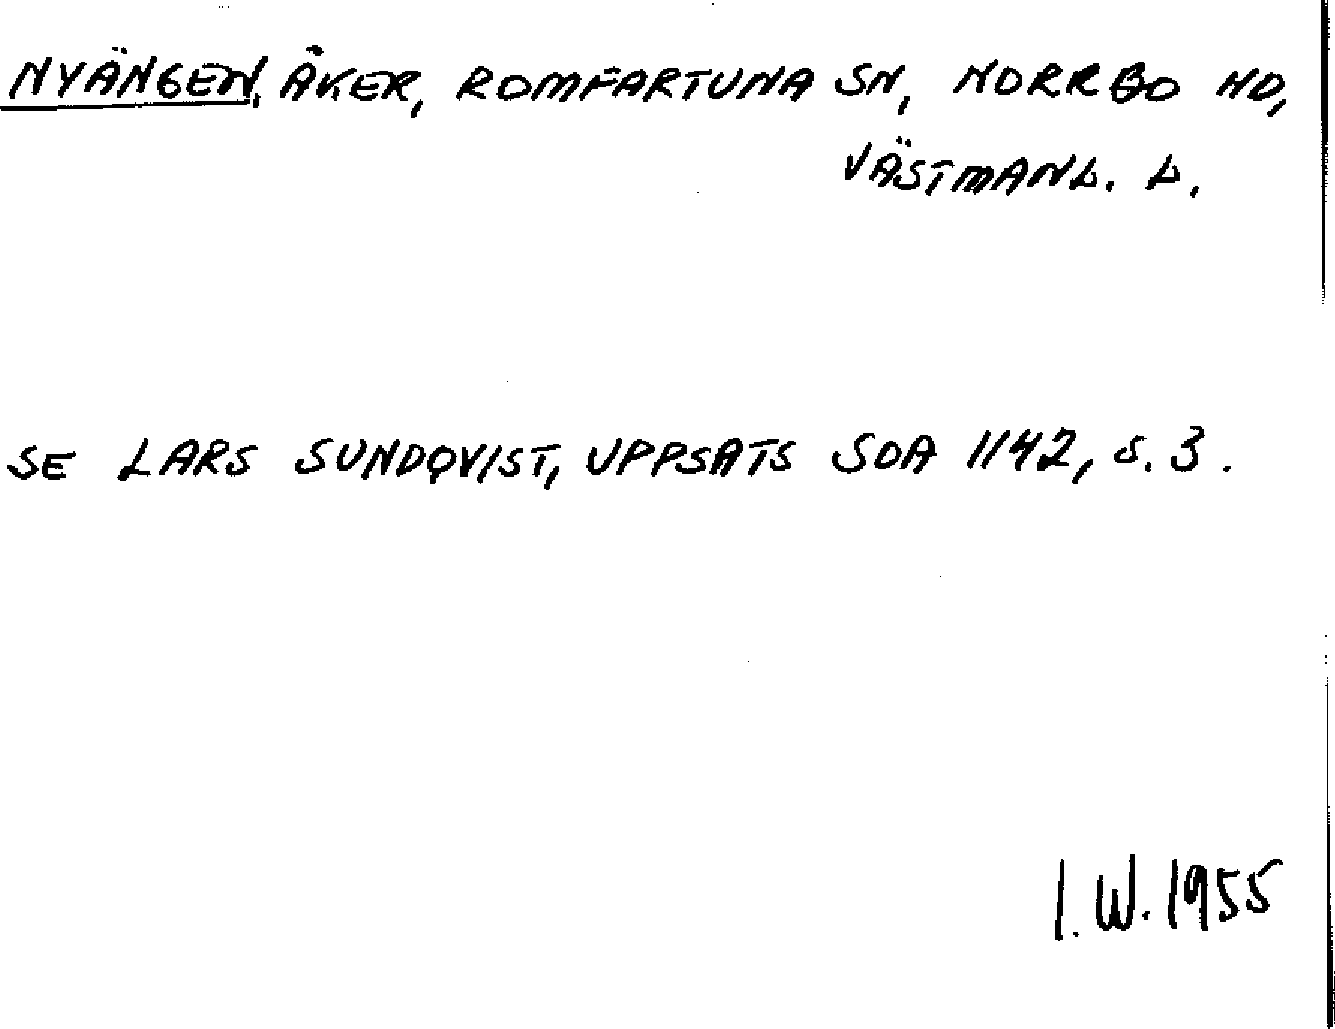 NYÄNGEN, ÅKER, ROMFARTUNA SN, NORRBO HD,
VÄSTMANL. L.
SE LARS SUNDQVIST, UPPSATS SOA 1142, S. 3.
I. W. 1955